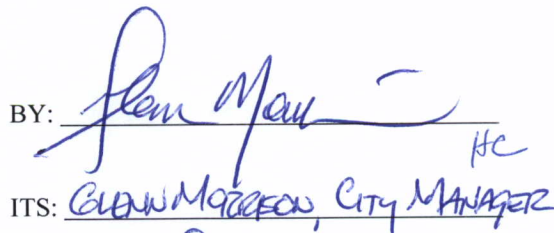 BY: Glenn Morrison
HC
ITS: GLENN MORRISON, CITY MANAGER